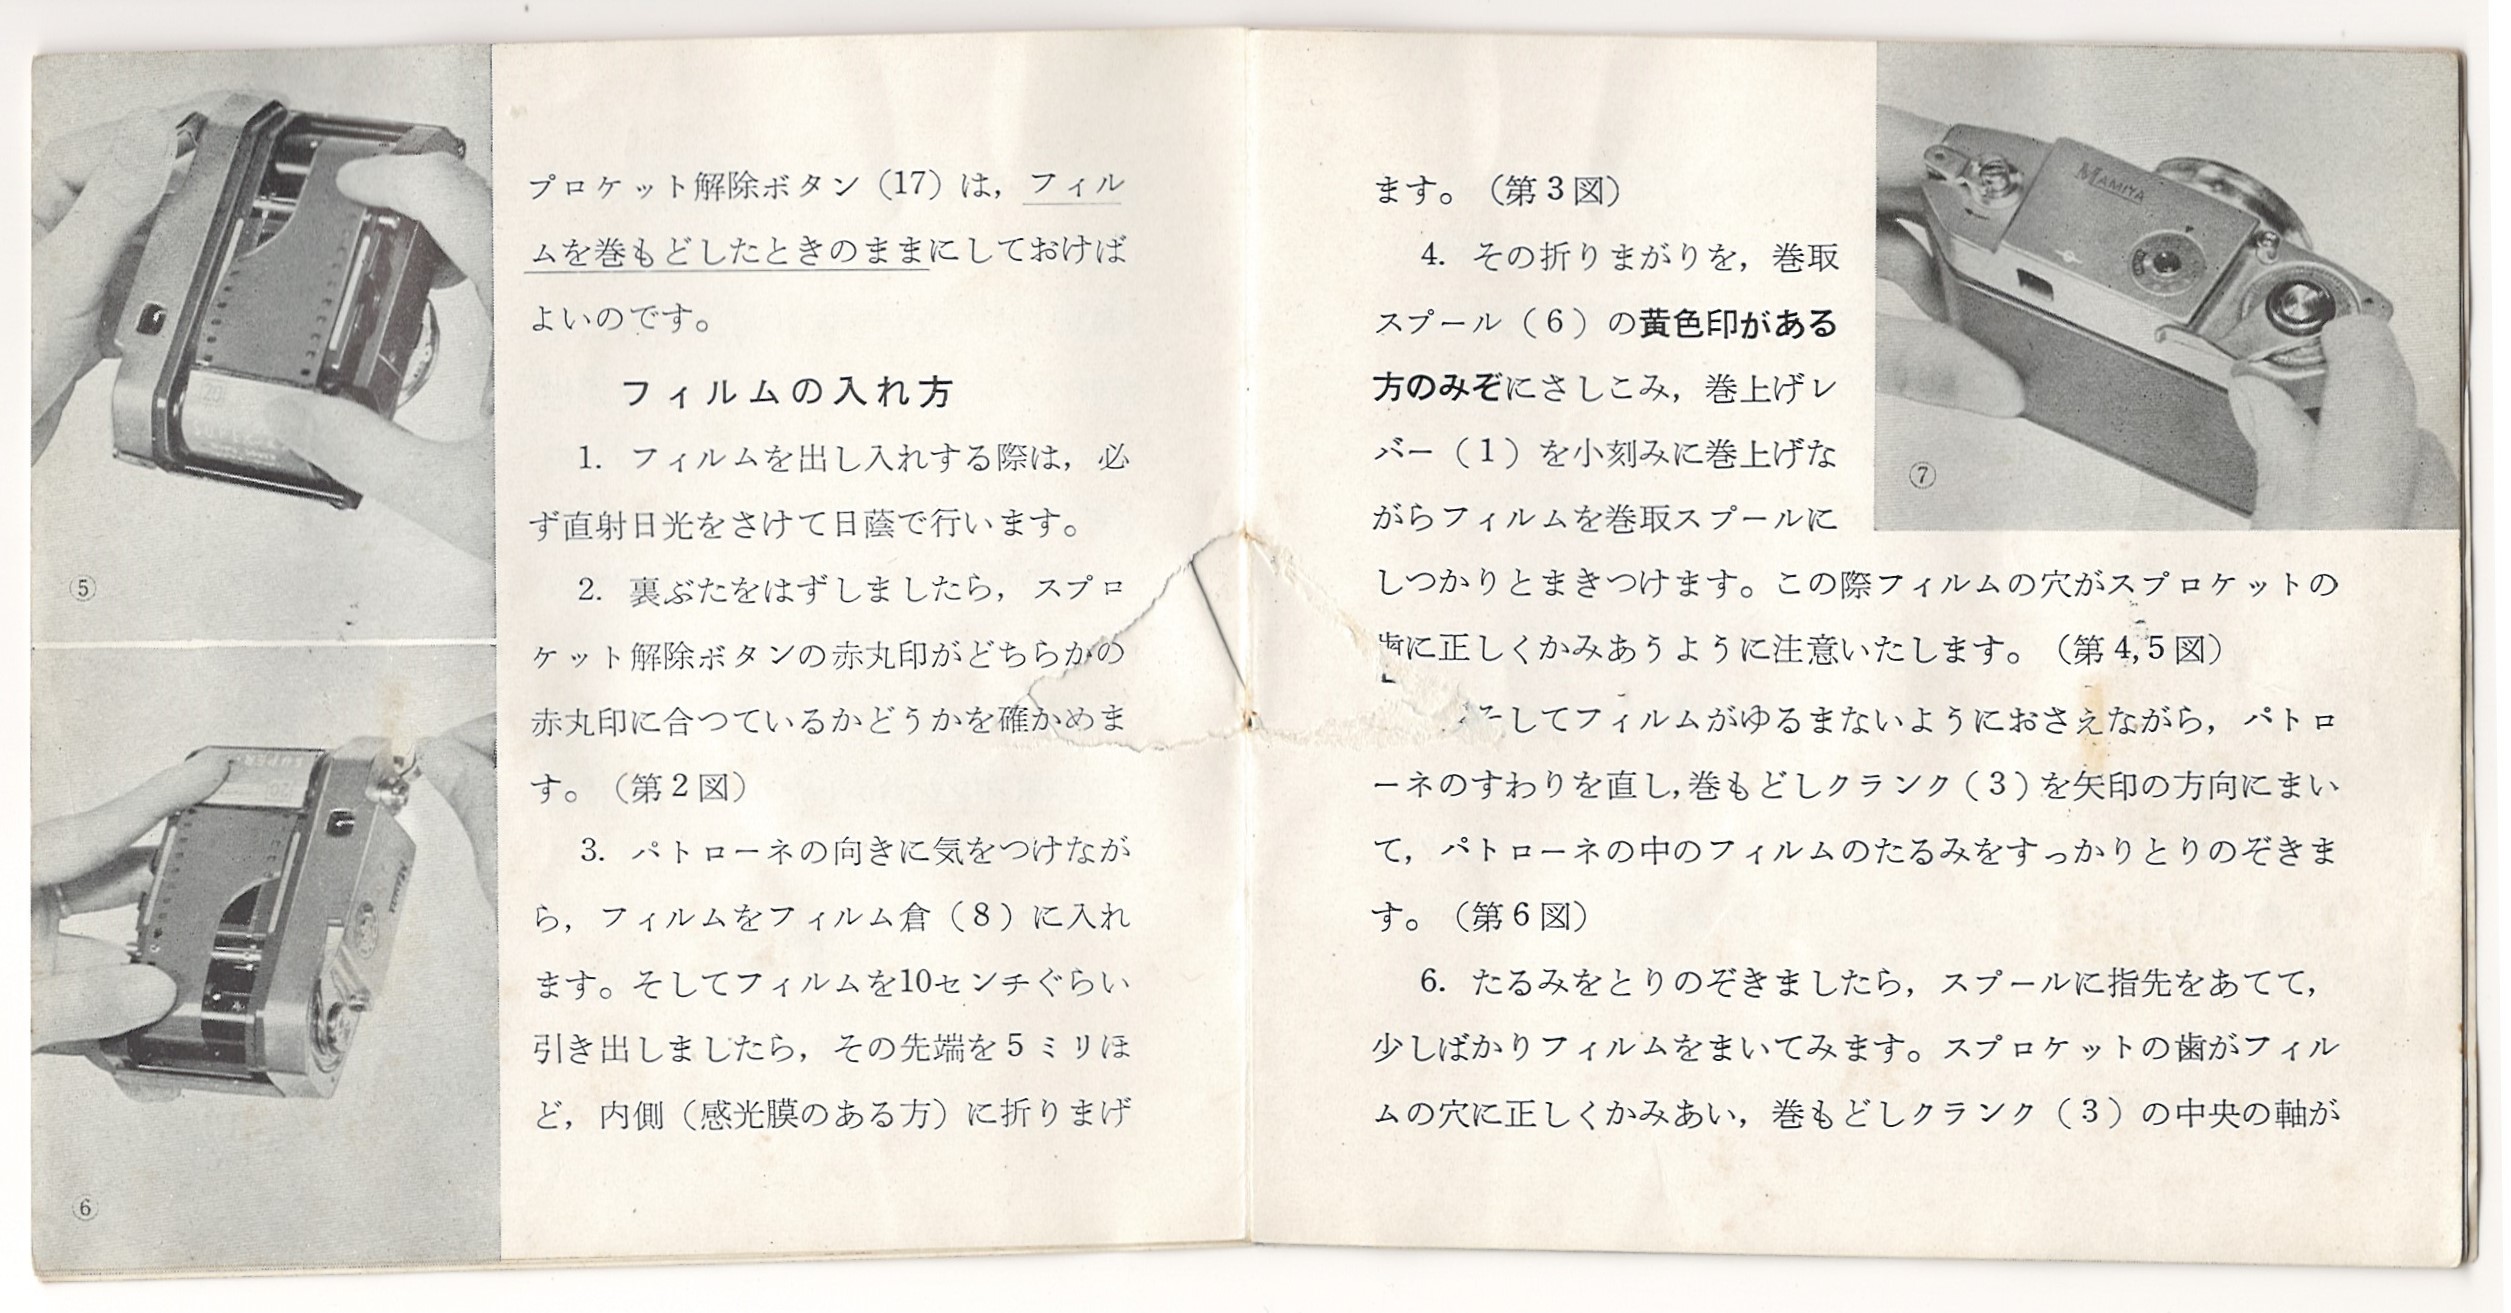 プロケット解除ボタン（17）は，フィル
ムを巻もどしたときのままにしておけば
よいのです。
フィルムの入れ方
1. フィルムを出し入れする際は，必
ず直射日光をさけて日蔭で行います。
2. 裏ぶたをはずしましたら，スプロ
ケット解除ボタンの赤丸印がどちらかの
赤丸印に合つているかどうかを確かめま
す。（第2図）
3. パトローネの向きに気をつけなが
ら，フィルムをフィルム倉（8）に入れ
ます。そしてフィルムを10センチぐらい
引き出しましたら，その先端を5ミリほ
ど，内側（感光膜のある方）に折りまげ
⑤
⑥
ます。（第3図）
4. その折りまがりを，巻取
スプール（6）の黄色印がある
方のみぞにさしこみ，巻上げレ
バー（1）を小刻みに巻上げな
がらフィルムを巻取スプールに
しつかりとまきつけます。この際フィルムの穴がスプロケットの
歯に正しくかみあうように注意いたします。（第4,5図）
してフィルムがゆるまないようにおさえながら，パトロ
ーネのすわりを直し,巻もどしクランク（3）を矢印の方向にまい
て，パトローネの中のフィルムのたるみをすっかりとりのぞきま
す。（第6図）
6. たるみをとりのぞきましたら，スプールに指先をあてて，
少しばかりフィルムをまいてみます。スプロケットの歯がフィル
ムの穴に正しくかみあい，巻もどしクランク（3）の中央の軸が
MAMIYA
⑦